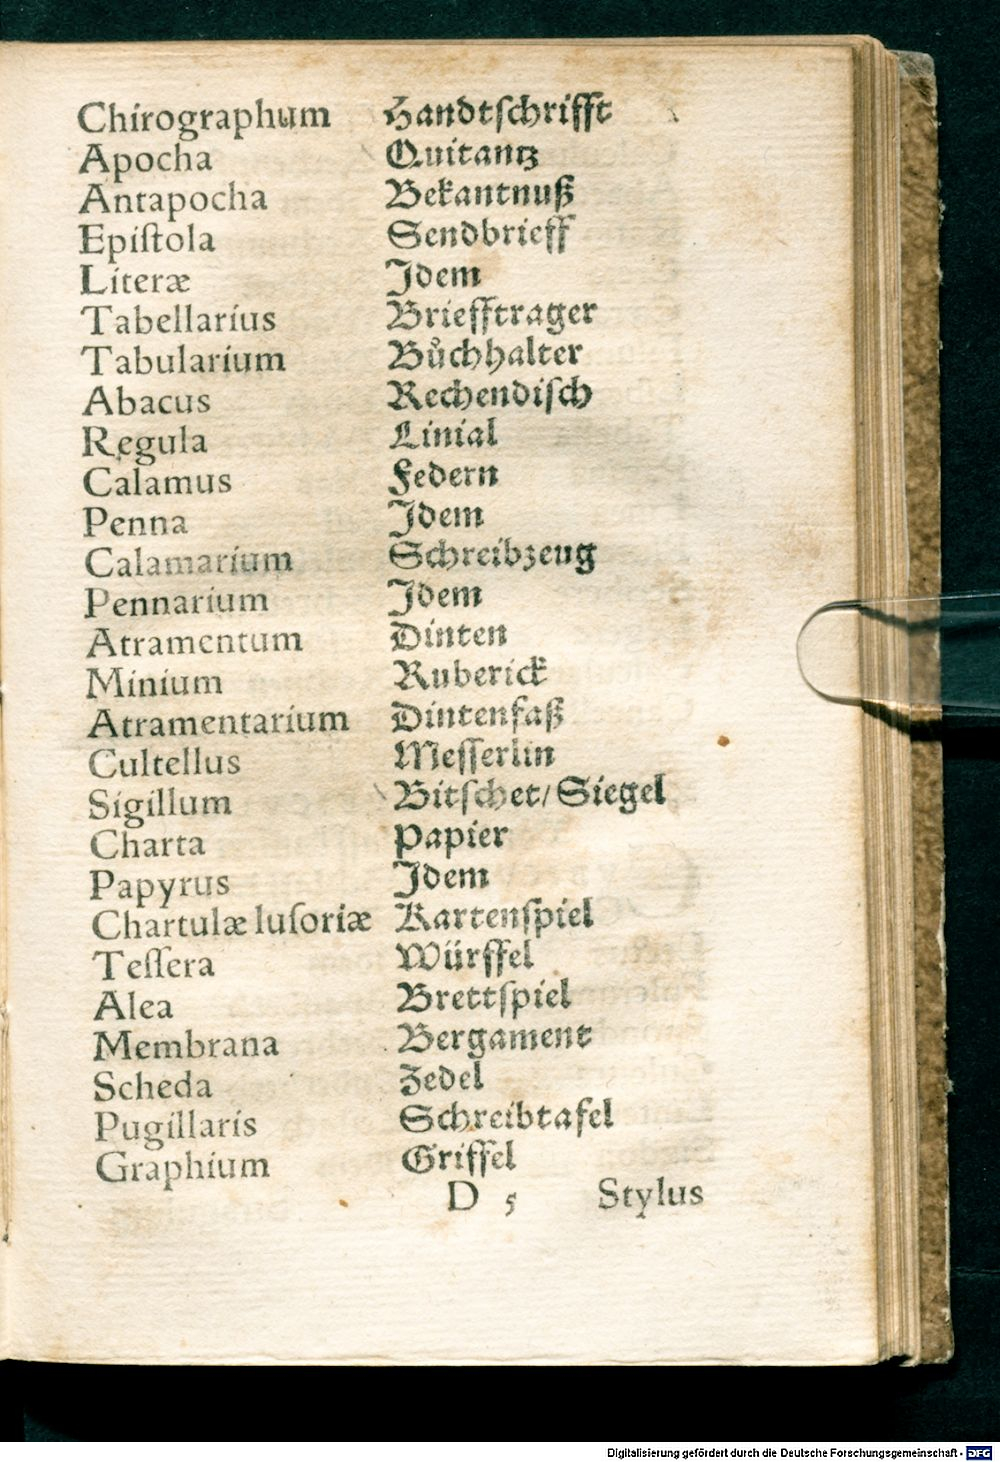 Chirographum Handtſchrifft
Apocha Quitantz
Antapocha Bekantnuß
Epiſtola Sendbrieff
Literæ Idem
Tabellarius Briefftrager
Tabularium Bůchhalter
Abacus Rechendiſch
Regula Linial
Calamus Federn
Penna Idem
Calamarium Schreibzeug
Pennarium Idem
Atramentum Dinten
Minium Ruberick
Atramentarium Dintenfaß
Cultellus Meſſerlin
Sigillum Bitſchet/Siegel
Charta Papier
Papyrus Idem
Chartulæ luſoriæ Kartenſpiel
Teſſera Würffel
Alea Brettſpiel
Membrana Bergament
Scheda Zedel
Pugillaris Schreibtafel
Graphium Griffel
D 5 Stylus
Digitalisierung gefördert durch die Deutsche Forschungsgemeinschaft - DFG